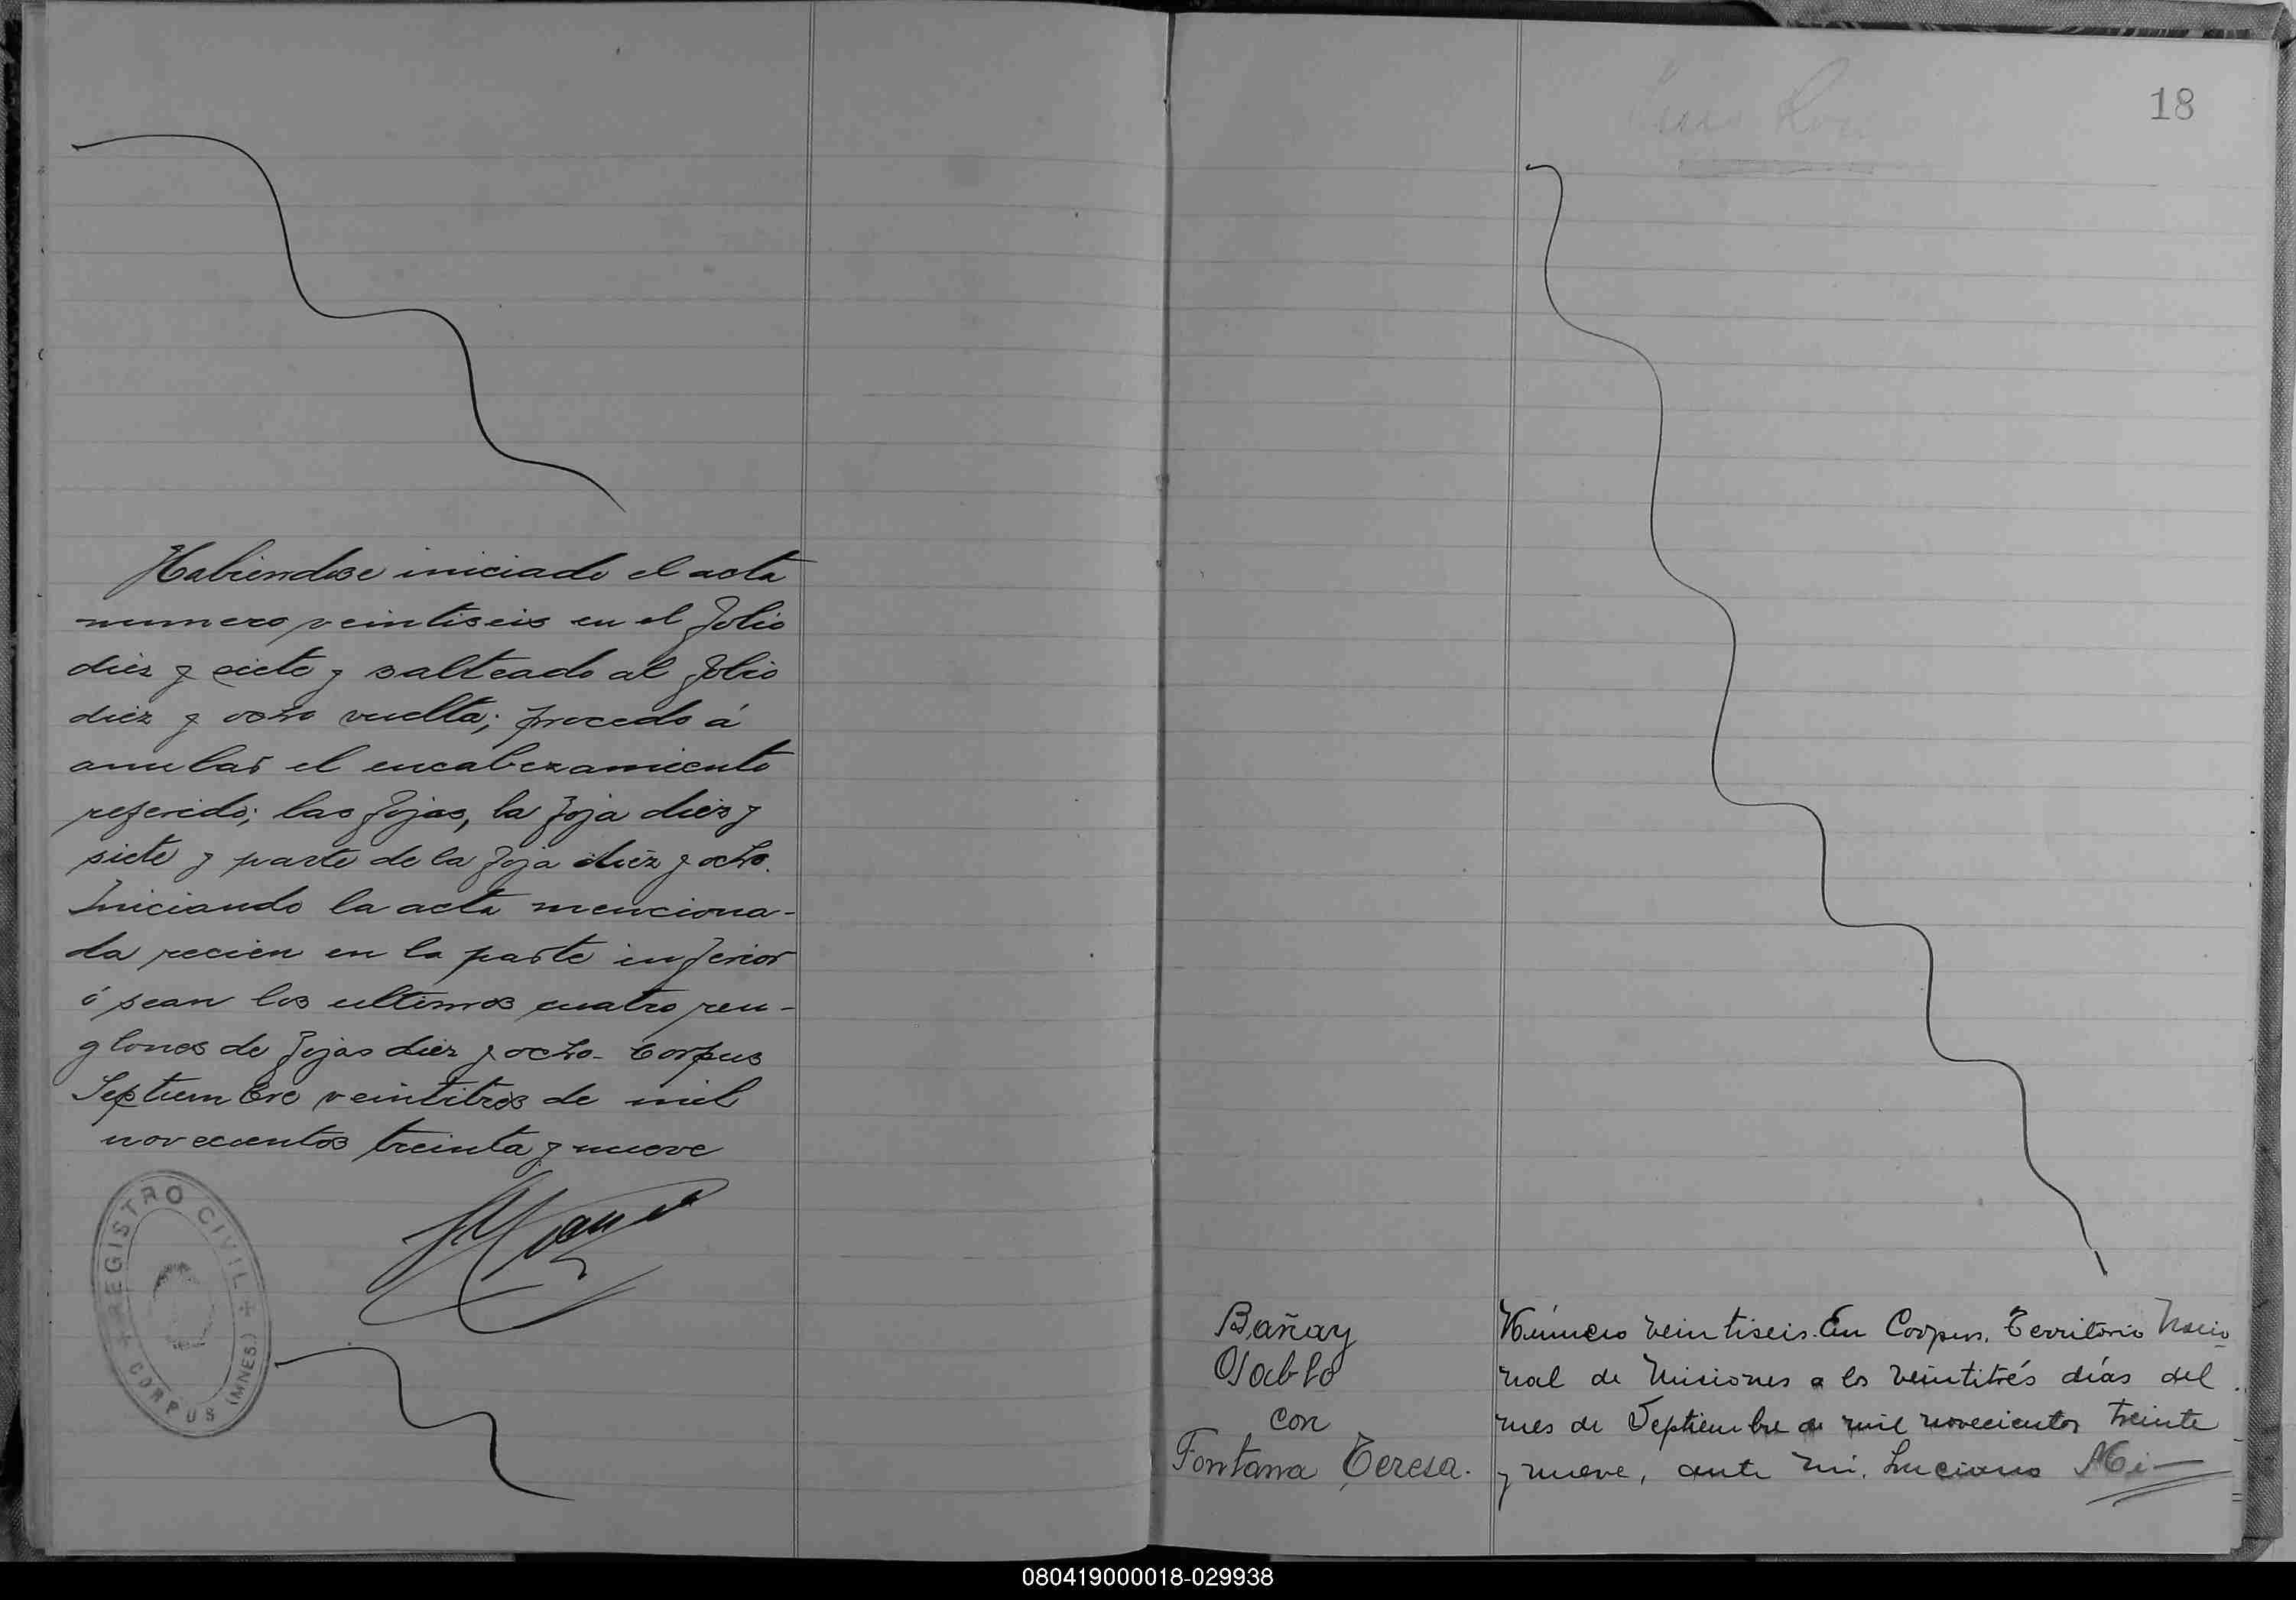 Habiendose iniciado el acta
numero veintiseis en el folio
diez y siete y salteado al folio
diez y ocho vuelta; procedo á
anular el encabezamiento
referido; las fojas, la foja diez y
siete y parte de la foja diez y ocho.
Iniciando la acta menciona-
da recien en la parte inferior
ó sean los ultimos cuatro ren-
glones de fojas diez y ocho - Corpus
Septiembre veintitres de mil
novecientos treinta y nueve
REGISTRO CIVIL
CORPUS (MNES.)
18
Bañay
Pablo
con
Fontana, Teresa.
Número veintiseis. En Corpus, Territorio Nacio-
nal de Misiones a los veintitrés días del
mes de Septiembre de mil novecientos treinta
y nueve, ante mi, Luciano Mi-
080419000018-029938